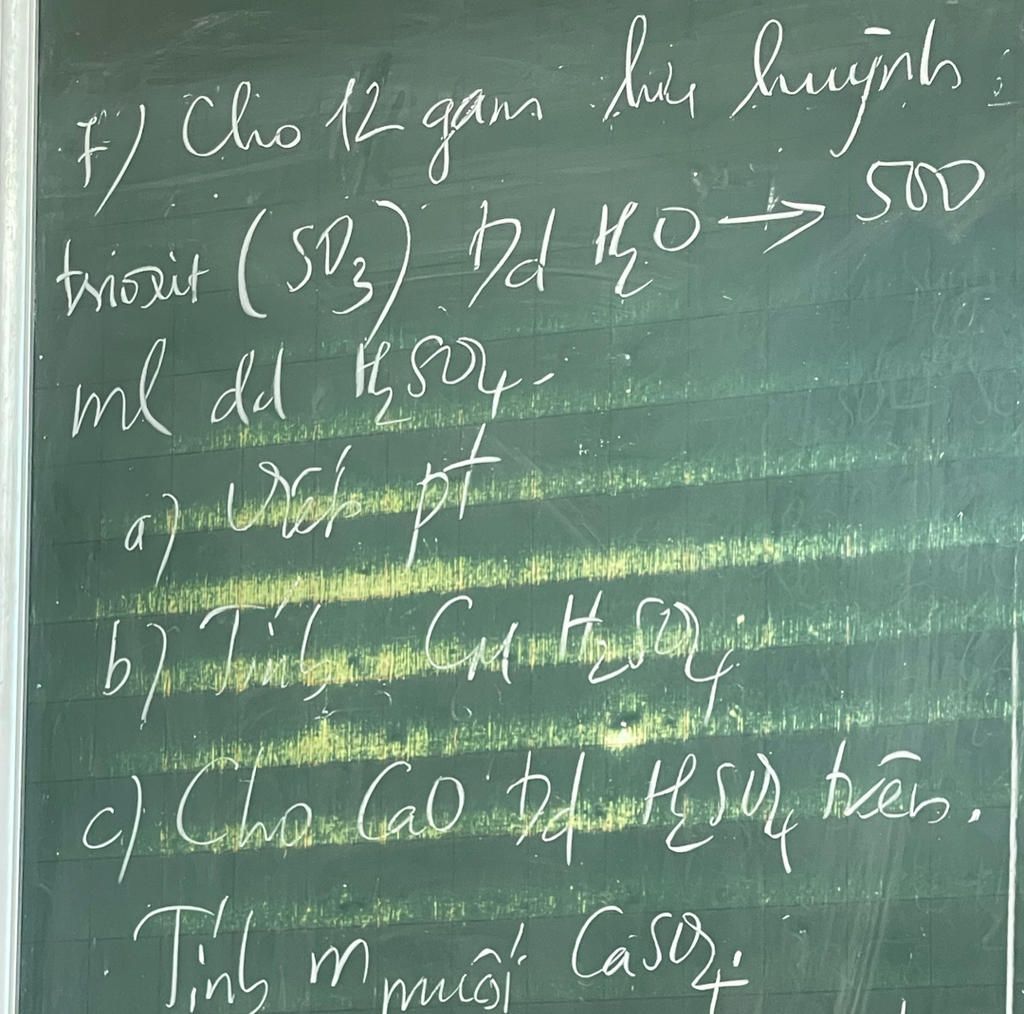 7) Cho 12 gam lưu huỳnh
trioxit (SO₃) t/d H₂O → 500
ml dd H₂SO₄.
a) Viết pt
b) Tính CM H₂SO₄.
c) Cho CaO t/d H₂SO₄ trên.
Tính m muối CaSO₄.